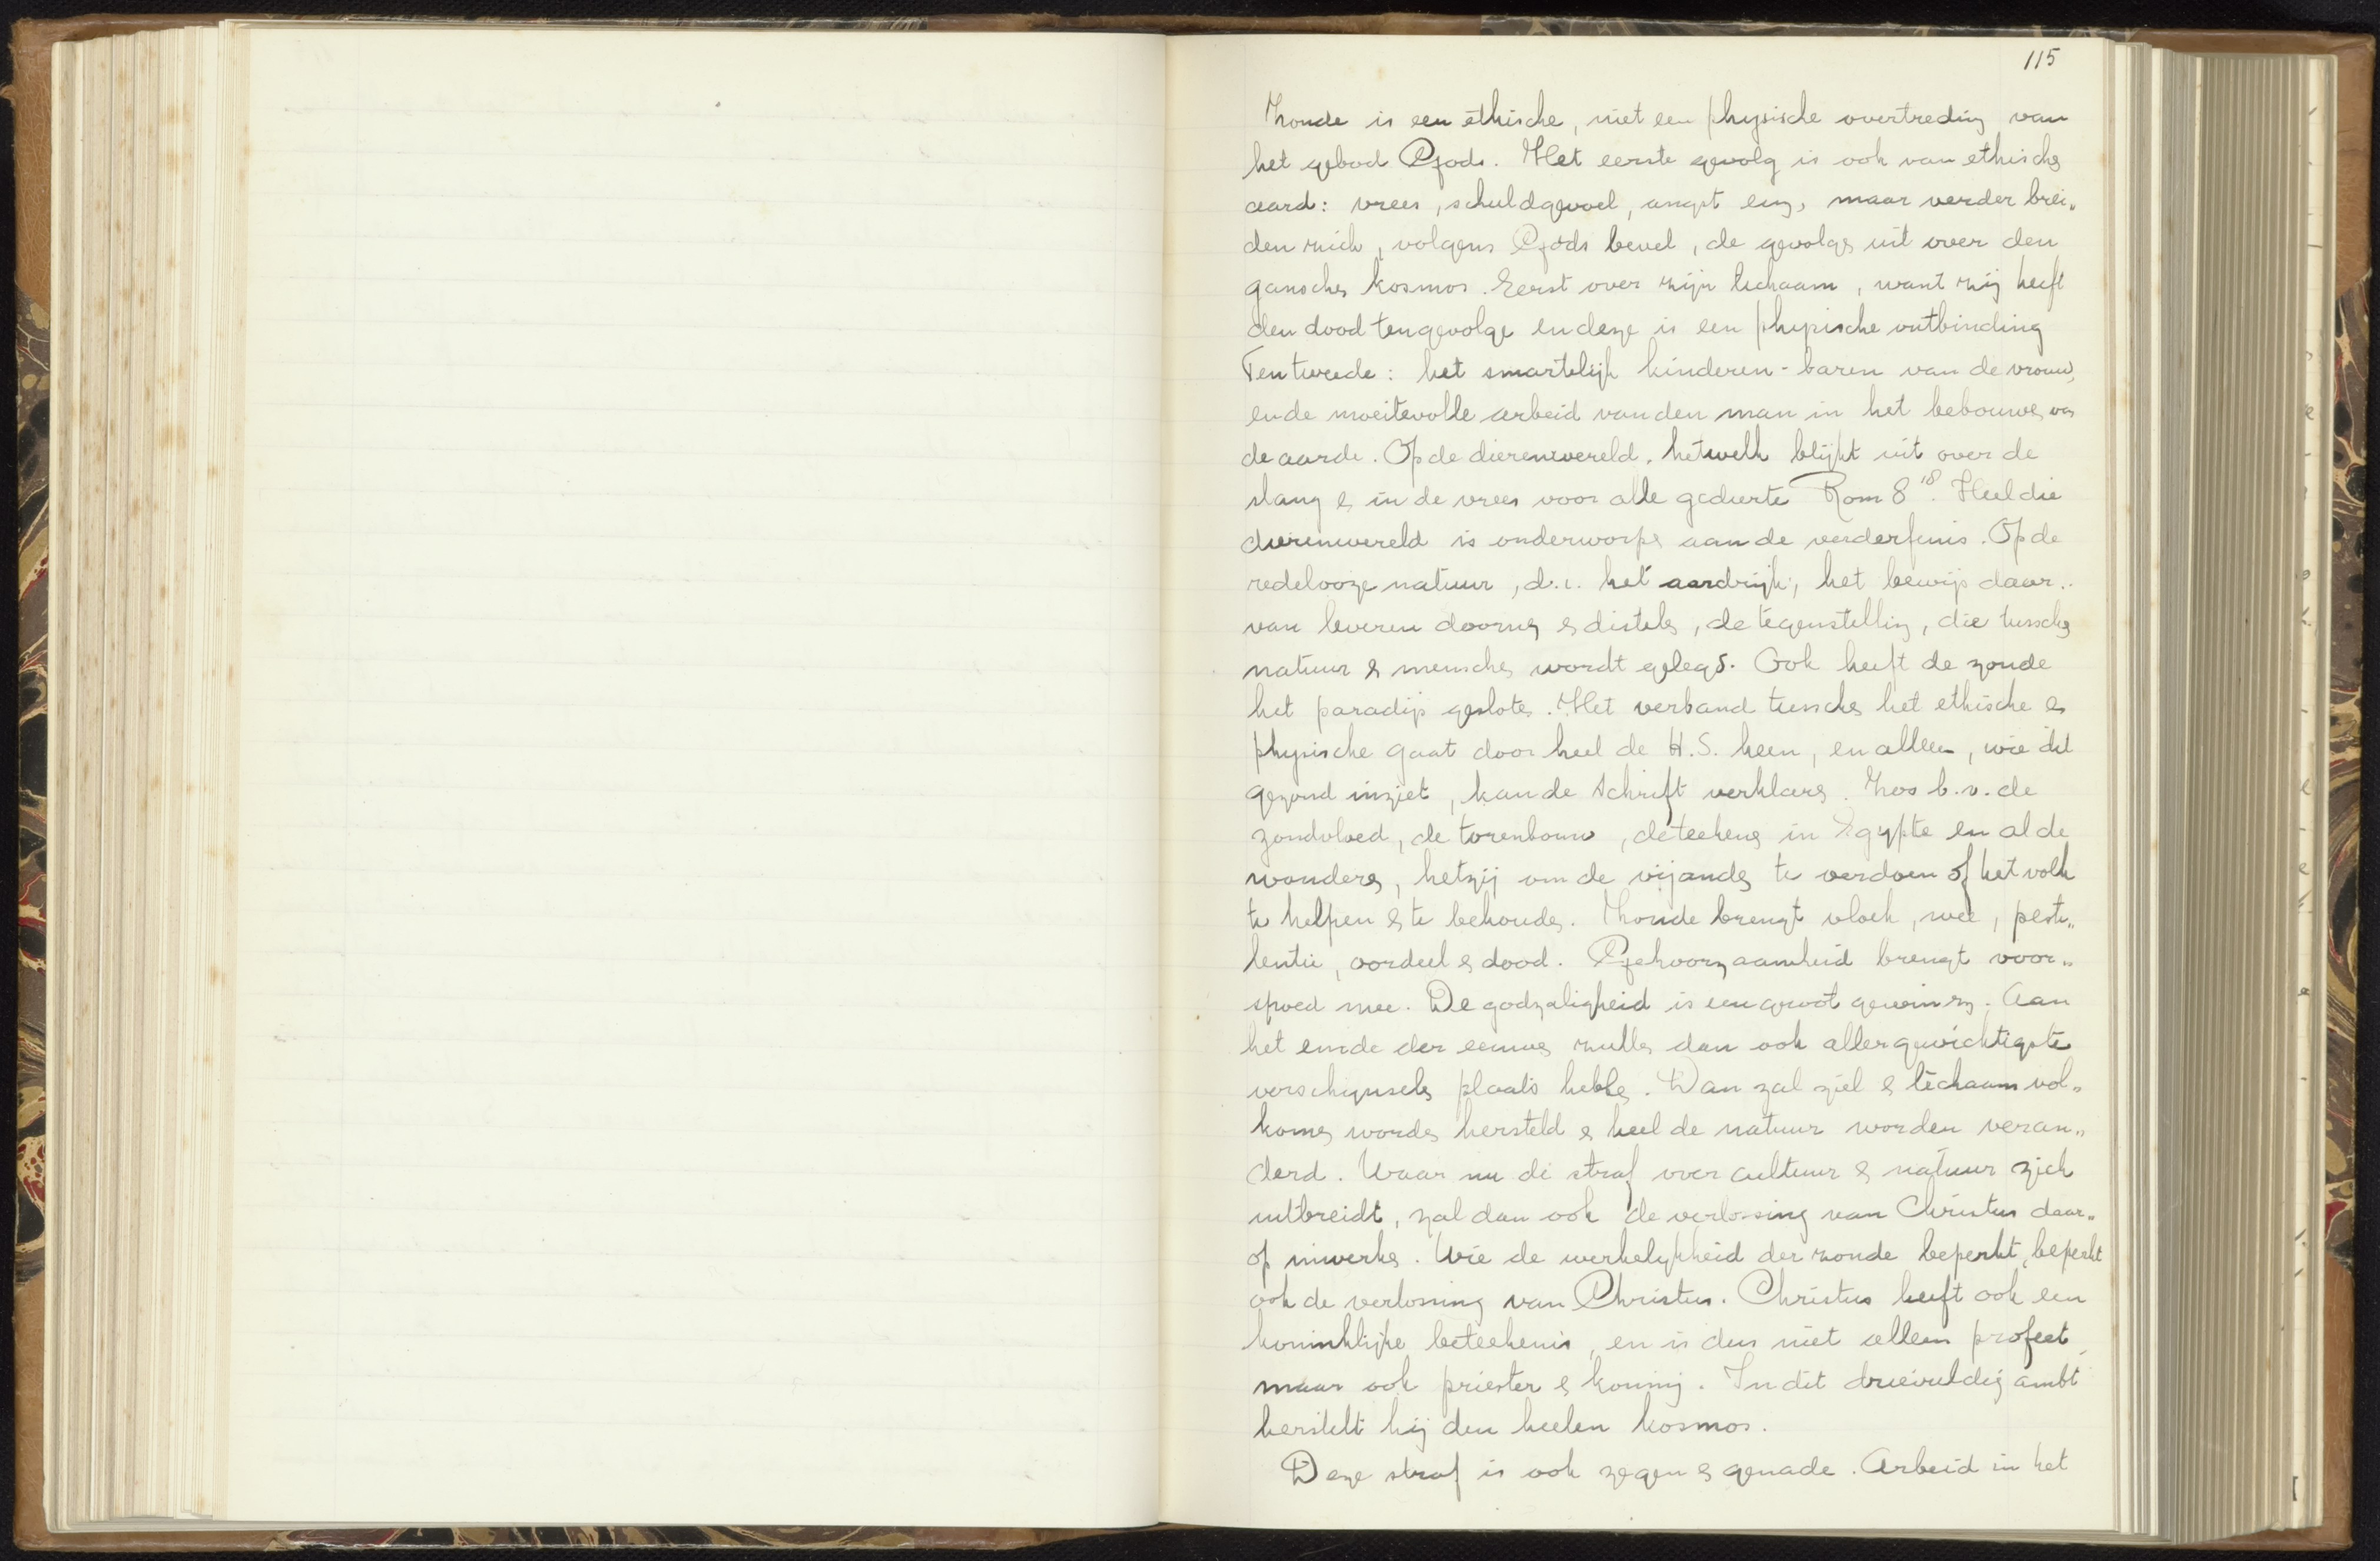 115
Zonde is een ethische, niet een physische overtreding van
het gebod Gods. Het eerste gevolg is ook van ethische
aard: vrees, schuldgevoel, angst enz, maar verder brei„
den zich, volgens Gods bevel, de gevolgen uit over den
ganschen kosmos. Eerst over zijn lichaam, want zij heeft
den dood tengevolge en deze is een physische ontbinding
Ten tweede: het smartelijk kinderen-baren van de vrouw,
en de moeitevolle arbeid van den man in het bebouwen van
de aarde. Op de dierenwereld, hetwelk blijkt uit over de
slang en in de vrees voor alle gedierte Rom 8 18. Heel die
dierenwereld is onderworpen aan de verderfenis. Op de
redelooze natuur, d.i. het aardrijk, het bewijs daar„
van leveren doornen en distelen, de tegenstelling, die tusschen
natuur en menschen wordt gelegd. Ook heeft de zonde
het paradijs gesloten. Het verband tusschen het ethische en
physische gaat door heel de H.S. heen, en alleen, wie dit
gezond inziet, kan de Schrift verklaren. Zoo b.v. de
zondvloed, de torenbouw, de teekenen in Egypte en al de
wonderen, hetzij om de vijanden te verdoen of het volk
te helpen en te behouden. Zonde brengt vloek, wee, pesti„
lentie, oordeel en dood. Gehoorzaamheid brengt voor„
spoed mee. De godzaligheid is een groot gewin enz. Aan
het einde der eeuwen zullen dan ook allergewichtigste
verschijnselen plaats hebben. Dan zal ziel en lichaam vol„
komen worden hersteld en heel de natuur worden veran„
derd. Waar nu de straf over cultuur en natuur zich
uitbreidt, zal dan ook de verlossing van Christus daar„
op inwerken. Wie de werkelijkheid der zonde beperkt, beperkt
ook de verlossing van Christus. Christus heeft ook een
koninklijke beteekenis, en is dus niet alleen profeet,
maar ook priester en koning. In dit drievuldig ambt
herstelt hij den heelen kosmos.
Deze straf is ook zegen en genade. Arbeid in het